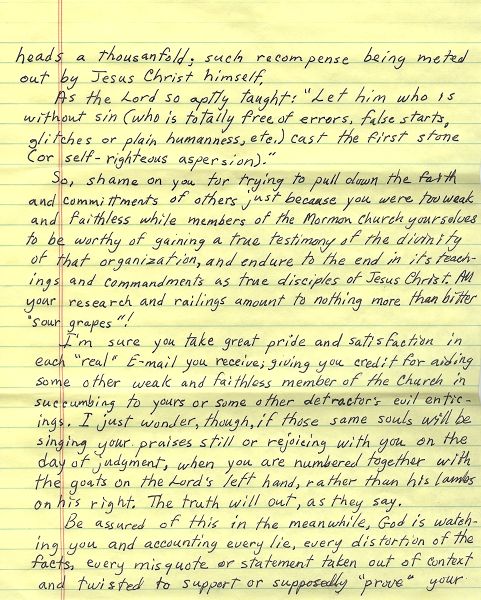 heads a thousanfold; such recompense being meted
out by Jesus Christ himself.
As the Lord so aptly taught: "Let him who is
without sin (who is totally free of errors, false starts,
glitches or plain humanness, etc.) cast the first stone
(or self-righteous aspersion)."
So, shame on you for trying to pull down the faith
and committments of others just because you were too weak
and faithless while members of the Mormon Church yourselves
to be worthy of gaining a true testimony of the divinity
of that organization, and endure to the end in its teach-
ings and commandments as true disciples of Jesus Christ. All
your research and railings amount to nothing more than bitter
"sour grapes"!
I'm sure you take great pride and satisfaction in
each "real" E-mail you receive; giving you credit for aiding
some other weak and faithless member of the Church in
succumbing to yours or some other detractor's evil entic-
ings. I just wonder, though, if those same souls will be
singing your praises still or rejoicing with you on the
day of judgment, when you are numbered together with
the goats on the Lord's left hand, rather than his lambs
on his right. The truth will out, as they say.
Be assured of this in the meanwhile, God is watch-
ing you and accounting every lie, every distortion of the
facts, every misquote or statement taken out of context
and twisted to support or supposedly "prove" your